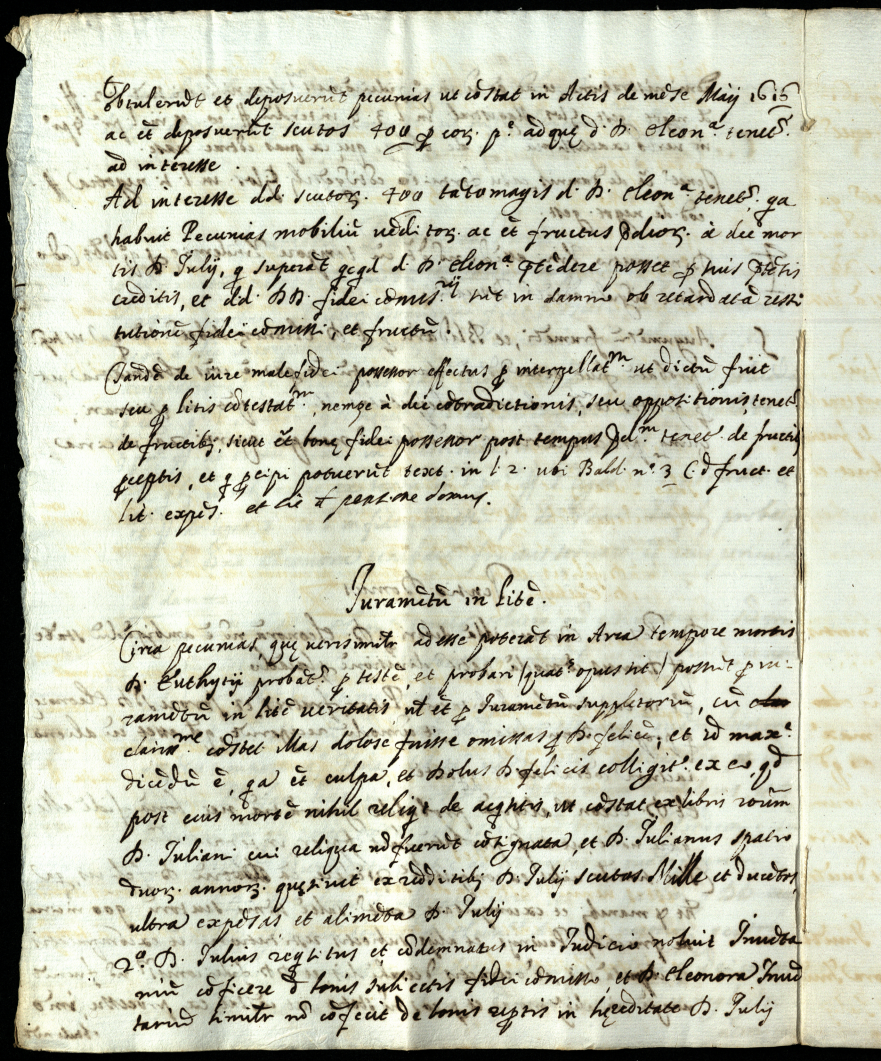 obtulerūt et deposuerūt pecunias ut cōstat in Actis de mēse Maij 1616
ac ēt deposuerūt scutos 400 ꝑ eorꝫ pᵉ. ad quę d. D. Eleonᵃ tenetʳ.
ad interesse.
Ad interesse dd. scutorꝫ. 400 tāto magis d. D. Eleonᵃ tenetʳ. qa
habuit Pecunias mobiliū uēditorꝫ. ac ēt fructus p̄diorꝫ. à die mor
tis D. Julij, q superāt qcqd d. D. Eleonᵃ p̄tēdere posset ꝑ suis p̄tēsis
creditis, et dd. DD. fidei cōmissʳⁱʲ sūt in damno ob retardatā resti
tutionē fidei cōmissi, et fructū.
de iure malefidei possessor effectus ꝑ interpellatᵐ. ut dictū fuit
seu ꝑ litis cōtestatᵐ, nempe à die cōtradictionis, seu oppositionis, tenetʳ
de fructibꝫ, sicut ēt bonę fidei possessor post tempus p̄dᵐ. tenetʳ de fructibꝫ
ꝑceptis, et q ꝑcipi potuerūt text. in l. 2. ubi Bald. nº. 3 C. d fruct. et
lit. expēs. et pensione domus.
Juramētū in litē.
Circa pecunias, quę uerisimilr adesse poterāt in Arca tempore mortis
D. Euthytij probatʳ ꝑ testē, et probari (quatˢ opus sit) possūt ꝑ iu-
ramētū in litē ueritatis, ul ēt ꝑ Juramētū suppletoriū, cū
clarissᵐᵉ cōstet illas dolose fuisse omissas ꝑ D. felicē, et id maxᵉ
dicēdū ē, qa ēt culpa, et Dolus D. felicis colligitʳ ex eo, qd
post eius mortē nihil reliqt de acqsitis, ut cōstat ex libris rōum
D. Iuliani cui reliqua nō fuerūt cōsignata, et D. Iulianus spatio
duorꝫ. annorꝫ. quęsiuit ex redditibꝫ D. Julij scutos Mille et ducētos,
ultra expēsas et alimēta D. Julij
2º. D. Iulius reqsitus et cōdemnatus in Iudicio noluit Inuēta
riū cōficere d bonis subiectis fidei cōmisso, et D. Eleonora Inuē
tariū similr nō cōfecit de bonis reptis in hęreditate D. Julij